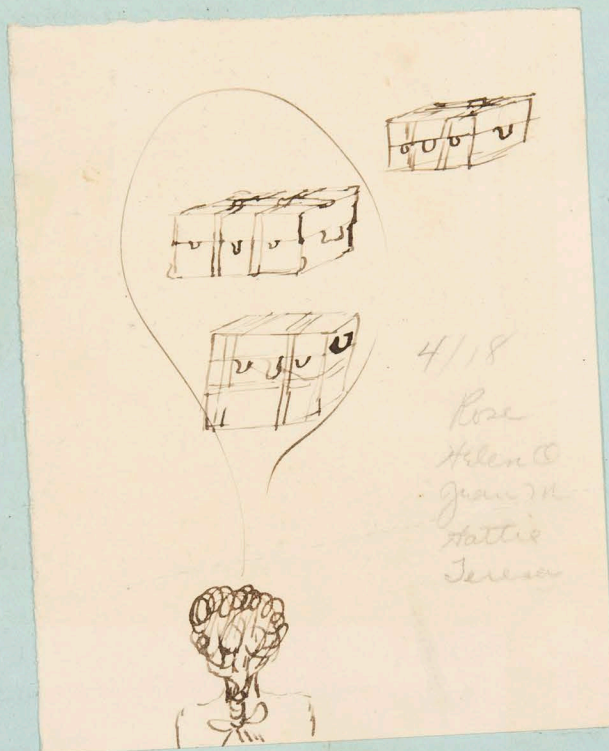 4/18
Rose
Helen O
Jean M
Hattie
Teresa